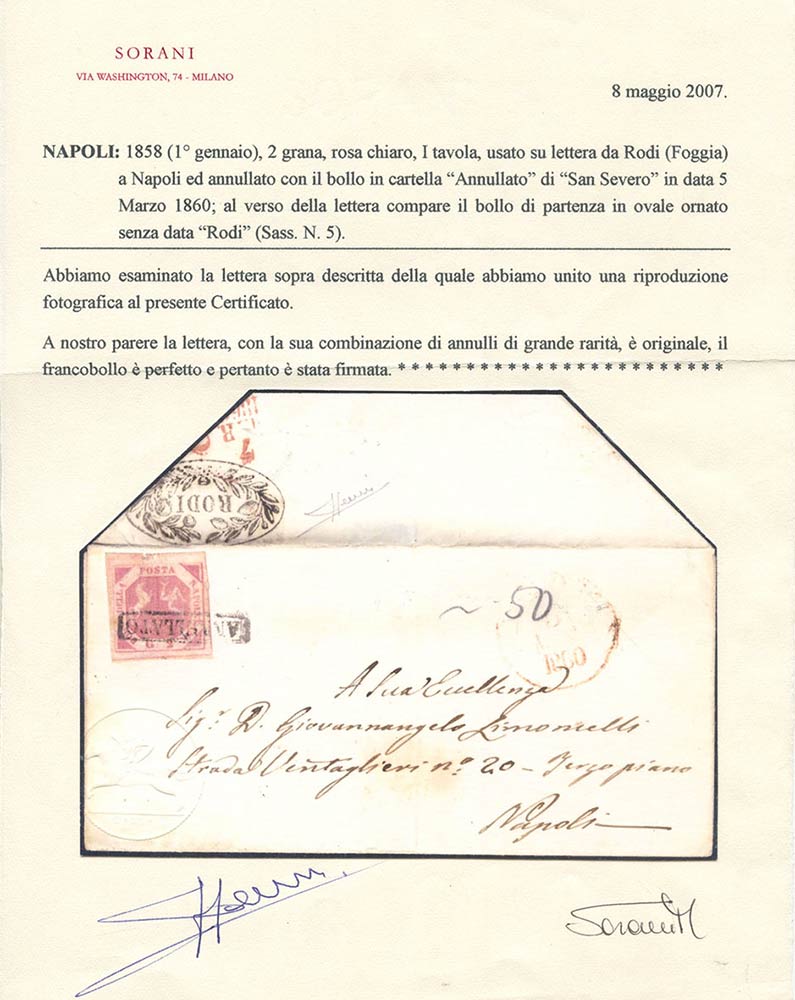 SORANI
VIA WASHINGTON, 74 - MILANO
8 maggio 2007.
NAPOLI: 1858 (1° gennaio), 2 grana, rosa chiaro, I tavola, usato su lettera da Rodi (Foggia)
a Napoli ed annullato con il bollo in cartella “Annullato” di “San Severo” in data 5
Marzo 1860; al verso della lettera compare il bollo di partenza in ovale ornato
senza data “Rodi” (Sass. N. 5).
Abbiamo esaminato la lettera sopra descritta della quale abbiamo unito una riproduzione
fotografica al presente Certificato.
A nostro parere la lettera, con la sua combinazione di annulli di grande rarità, è originale, il
francobollo è perfetto e pertanto è stata firmata. * * * * * * * * * * * * * * * * * * * * * * * *
RODI
POSTA
ANNULLATO
50
1860
A Sua Eccellenza
Sig.r D. Giovannangelo Limoncelli
Strada Ventaglieri n.o 20 - Terzo piano
Napoli
Sorani